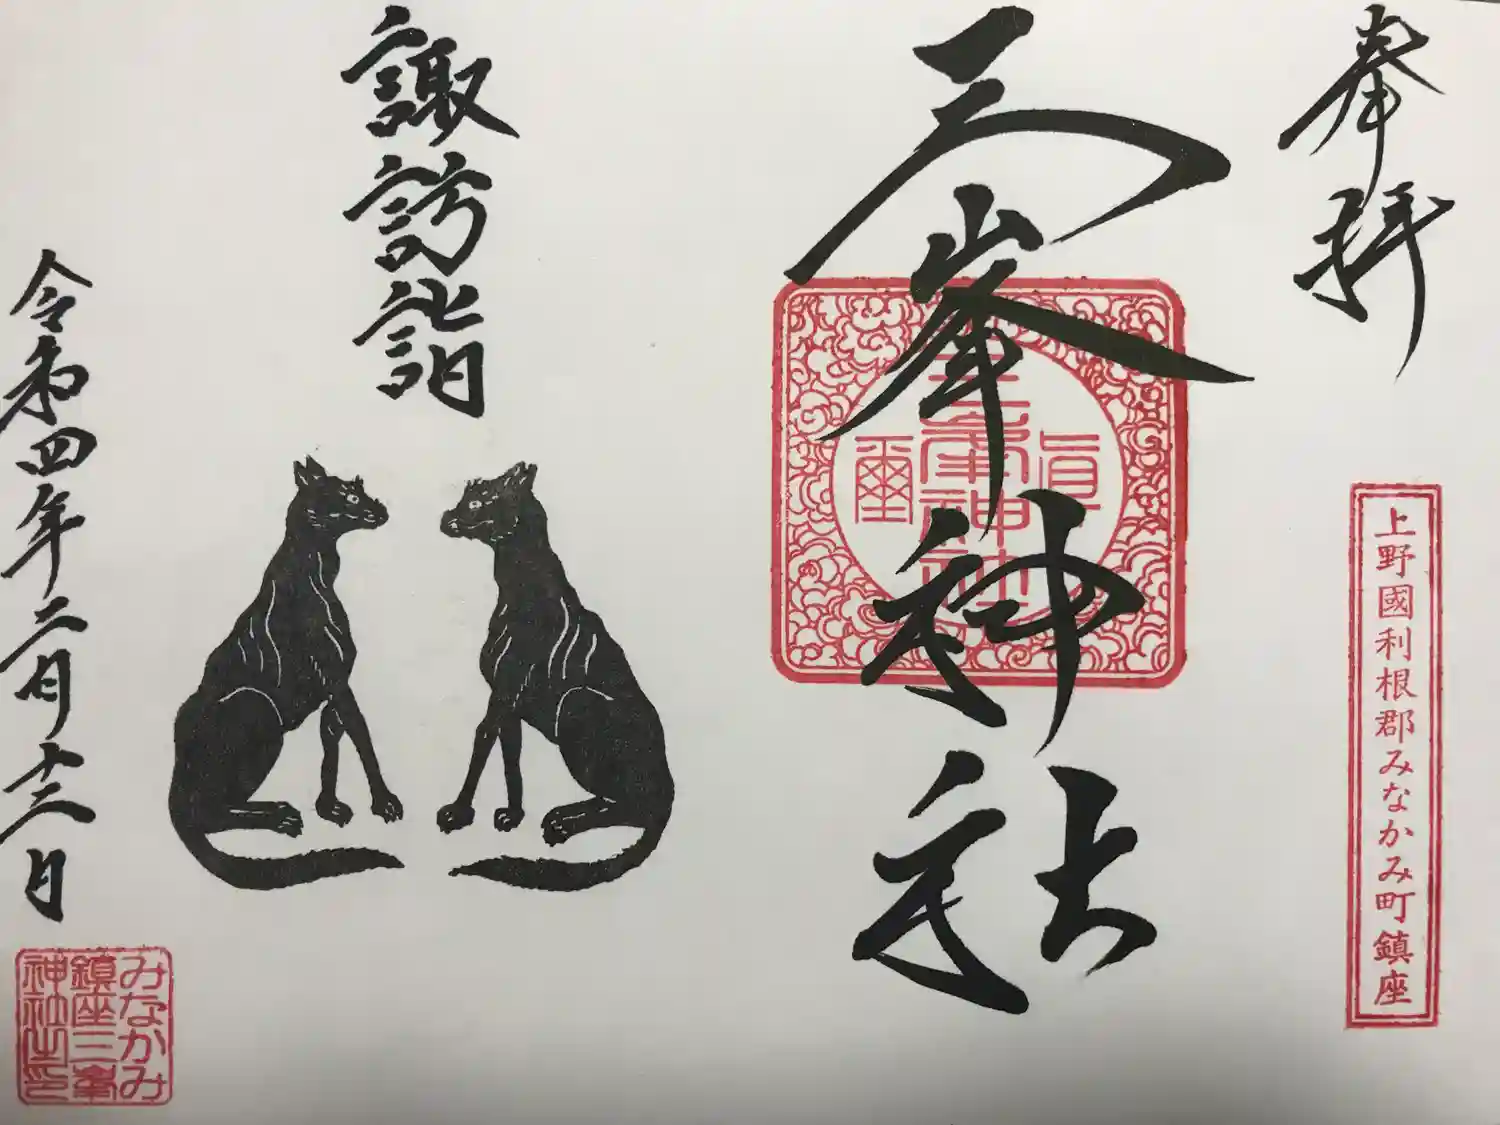 奉拝
上野國利根郡みなかみ町鎮座
三峯神社
三峯神社
眞
璽
諏訪詣
令和四年二月十三日
みなかみ
鎮座三峯
神社之印